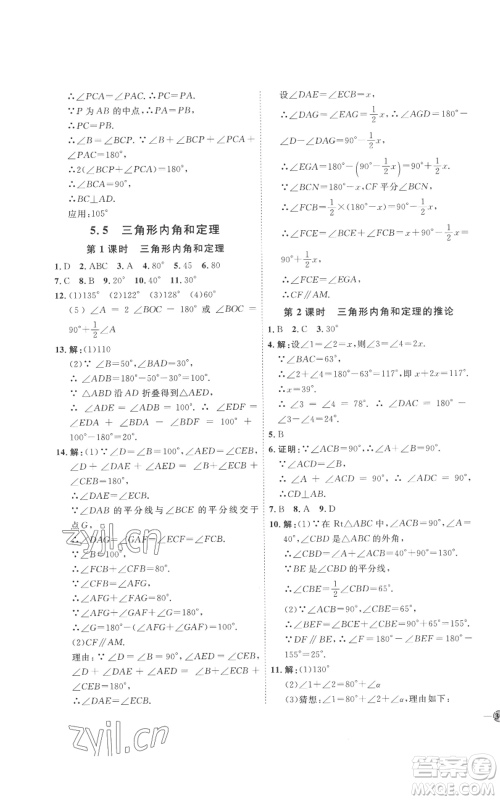 ∴∠PCA=∠PAC.∴PC=PA.
∵P为AB的中点,∴PA=PB.
∴PB=PC.
∴∠B=∠BCP.∵∠B+∠BCP+∠PCA+
∠PAC=180°,
∴2(∠BCP+∠PCA)=180°.
∴∠BCA=90°.
∴BC⊥AC.
应用:105°
5.5 三角形内角和定理
第1课时 三角形内角和定理
1.D 2.ABC 3.A 4.80° 5.45 6.80
7.C 8.B 9.20° 10.40° 11.30°
12.(1)135° (2)122° (3)128° (4)60°
(5)∠BOC=2∠BOC-180°或∠BOC=
90°+1/2∠A
13.解:(1)110
(2)∵∠B=50°,∠BAD=30°,
∴∠ADB=180°-50°-30°=100°.
∵△ABD沿AD折叠得到△AED,
∴∠ADE=∠ADB=100°.∴∠EDF=
∠EDA+∠BDA-∠BDF=100°+
100°-180°=20°.
14.解:(1)∵∠D=∠B=100°,∠AED=∠CEB,
∠D+∠DAE+∠AED=∠B+∠BCE+
∠CEB=180°,
∴∠DAE=∠ECB.
∵∠DAB的平分线与∠BCE的平分线交于
点G,∴∠DAG=∠GAF=∠ECF=∠BCF.
∵∠B+∠BCF+∠CFB=180°,
∴∠B+∠GAF+∠CFB=180°.
∴∠GAF+∠CFB=80°.
(2)CF∥AM.
理由:∵∠D=∠B=90°,∠AED=∠CEB,
∠D+∠DAE+∠AED=∠B+∠BCE+
∠CEB=180°,
∴∠DAE=∠ECB.
设∠DAE=∠ECB=x,
∴∠DAG=∠EAG=1/2x,∴∠AGD=180°-
∠D-∠DAG=90°-1/2x.
∴∠EGA=180°-(90°-1/2x)=90°+1/2x.
∵∠BCN=180°-x,CF平分∠BCN,
第2课时 三角形内角和定理的推论
1.B 2.C 3.30°
4.解:设∠1=∠2=x,则∠4=∠3=2x.
∵∠BAC=63°,
∴∠2+∠4=117°,即x+2x=117°.
∴x=39°.
∴∠3=∠4=78°.∴∠DAC=180°-
∠3-∠4=24°.
5.B
6.证明:∵∠ACB=90°,∴∠1+∠ACD=90°.
∵∠1=∠2,∴∠2+∠ACD=90°.
∴CD⊥AB.
7.B 8.A 9.D
10.解:(1)∵在Rt△ABC中,∠ACB=90°,∠A=
∵BE是∠CBD的平分线,
∴∠CBE=1/2∠CBD=65°.
(2)∵∠ACB=90°,∠CBE=65°,
∵DF∥BE,∴∠F=∠CEB=25°.
11.解:(1)130°
(2)∠1+∠2=90°+∠α
(3)猜想:∠1=90°+∠2+∠α,理由如下:
zyjl.cn
zyjl.cn